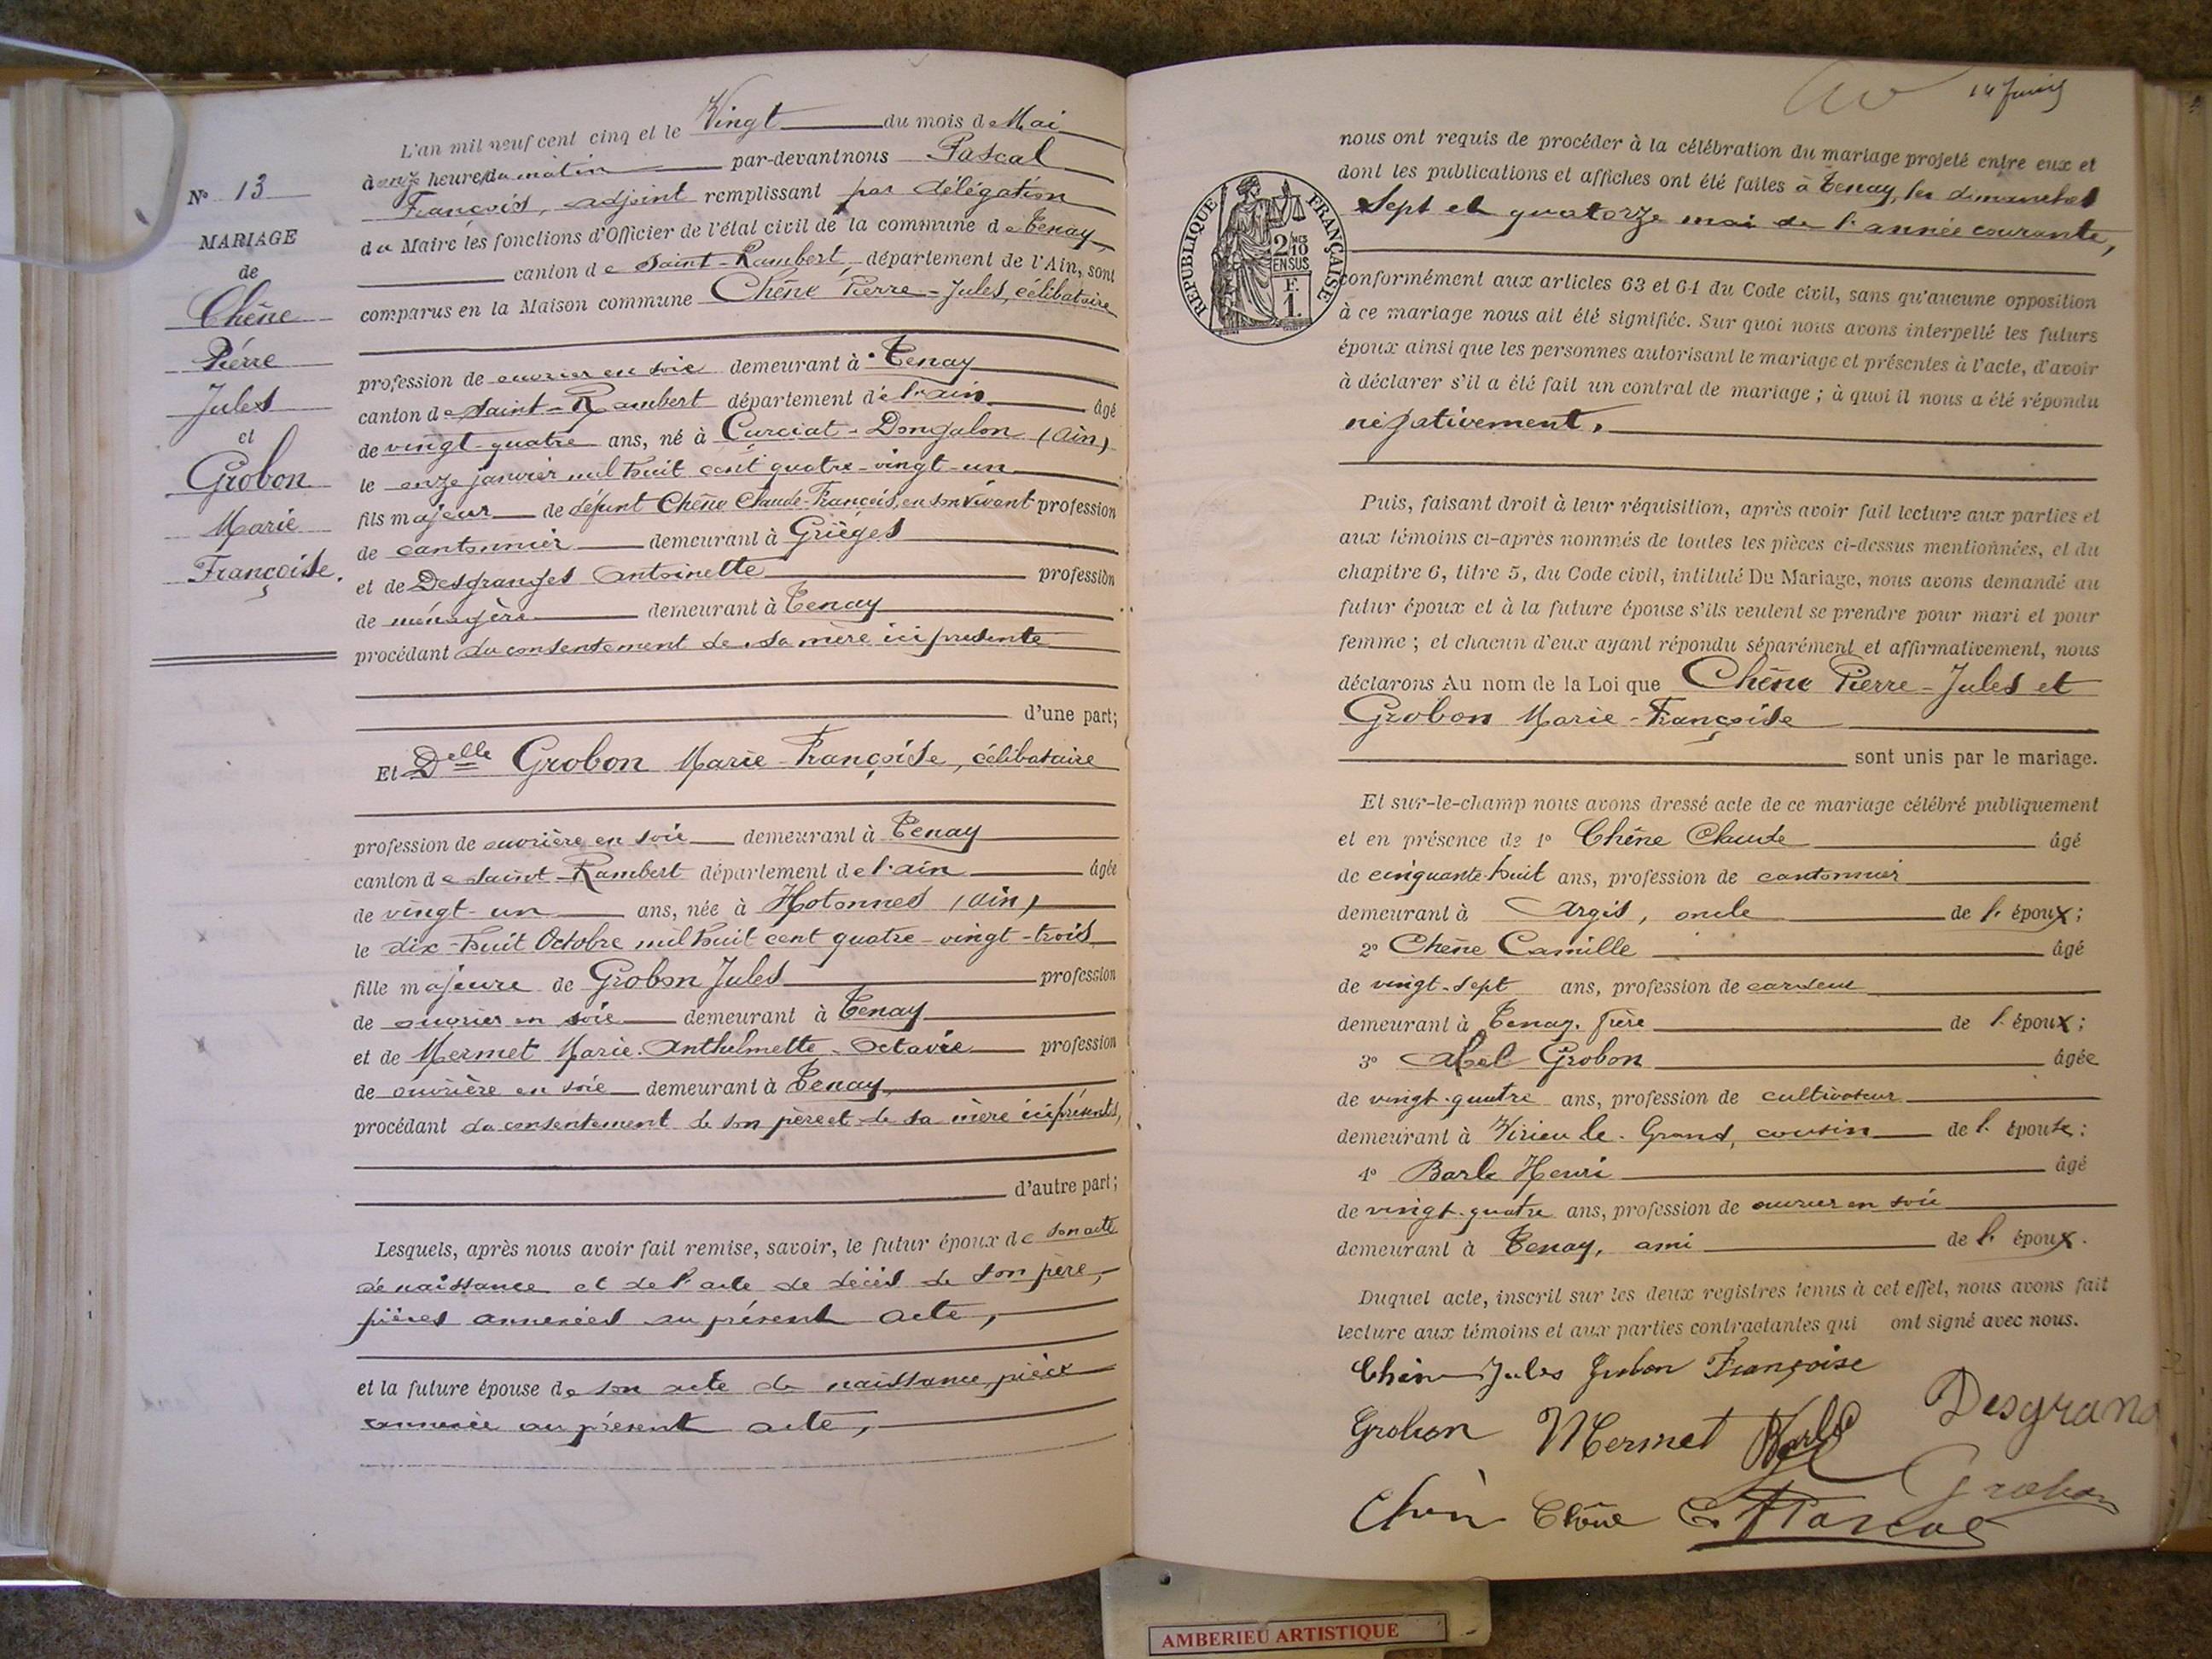 N° 13
MARIAGE
de
Chêne
Pierre
Jules
et
Grobon
Marie
Françoise.
L'an mil neuf cent cinq et le Vingt du mois de Mai
à onze heures du matin par-devant nous Pascal
François, adjoint remplissant par délégation
du Maire les fonctions d'Officier de l'état civil de la commune de Tenay,
canton de Saint-Rambert département de l'Ain, sont
comparus en la Maison commune Chêne Pierre-Jules, célibataire
profession de ouvrier en soie demeurant à Tenay
canton de Saint-Rambert département de l'ain âgé
de vingt-quatre ans, né à Curciat-Dongalon (Ain)
le onze janvier mil huit cent quatre-vingt-un
fils majeur de défunt Chêne Claude-François, en son vivant profession
de cantonnier demeurant à Grièges
et de Desgranges Antoinette profession
de ménagère demeurant à Tenay
procédant du consentement de sa mère ici présente
d'une part;
Et Delle Grobon Marie-Françoise, célibataire
profession de ouvrière en soie demeurant à Tenay
canton de Saint-Rambert département de l'ain âgée
de vingt-un ans, née à Hotonnes (Ain)
le dix-huit Octobre mil huit cent quatre-vingt-trois
fille majeure de Grobon Jules profession
de ouvrier en soie demeurant à Tenay
et de Mermet Marie-Anthelmette-Octavie profession
de ouvrière en soie demeurant à Tenay
procédant du consentement de son père et de sa mère ici présents,
d'autre part;
Lesquels, après nous avoir fait remise, savoir, le futur époux de son acte
de naissance et de l'acte de décès de son père,
pièces annexées au présent acte,
et la future épouse de son acte de naissance, pièce
annexée au présent acte,
14 Juin
nous ont requis de procéder à la célébration du mariage projeté entre eux et
dont les publications et affiches ont été faites à Tenay, les dimanches
sept et quatorze mai de l'année courante,
REPUBLIQUE FRANÇAISE
2/10 MES
EN SUS
F.
1.
conformément aux articles 63 et 64 du Code civil, sans qu'aucune opposition
à ce mariage nous ait été signifiée. Sur quoi nous avons interpellé les futurs
époux ainsi que les personnes autorisant le mariage et présentes à l'acte, d'avoir
à déclarer s'il a été fait un contrat de mariage; à quoi il nous a été répondu
négativement.
Puis, faisant droit à leur réquisition, après avoir fait lecture aux parties et
aux témoins ci-après nommés de toutes les pièces ci-dessus mentionnées, et du
chapitre 6, titre 5, du Code civil, intitulé Du Mariage, nous avons demandé au
futur époux et à la future épouse s'ils veulent se prendre pour mari et pour
femme; et chacun d'eux ayant répondu séparément et affirmativement, nous
déclarons Au nom de la Loi que Chêne Pierre-Jules et
Grobon Marie-Françoise
sont unis par le mariage.
Et sur-le-champ nous avons dressé acte de ce mariage célébré publiquement
et en présence de 1° Chêne Claude âgé
de cinquante-huit ans, profession de cantonnier
demeurant à Argis, oncle de l'époux;
2° Chêne Camille âgé
de vingt-sept ans, profession de cardeur
demeurant à Tenay, frère de l'époux;
3° Abel Grobon âgée
de vingt-quatre ans, profession de cultivateur
demeurant à Virieu-le-Grand, cousin de l'épouse;
4° Barle Henri âgé
de vingt-quatre ans, profession de ouvrier en soie
demeurant à Tenay, ami de l'époux.
Duquel acte, inscrit sur les deux registres tenus à cet effet, nous avons fait
lecture aux témoins et aux parties contractantes qui ont signé avec nous.
Chêne Jules Grobon Françoise
Grobon Mermet Barle Desgrand
Chêne Chêne C. Pascal Grobon
AMBERIEU ARTISTIQUE